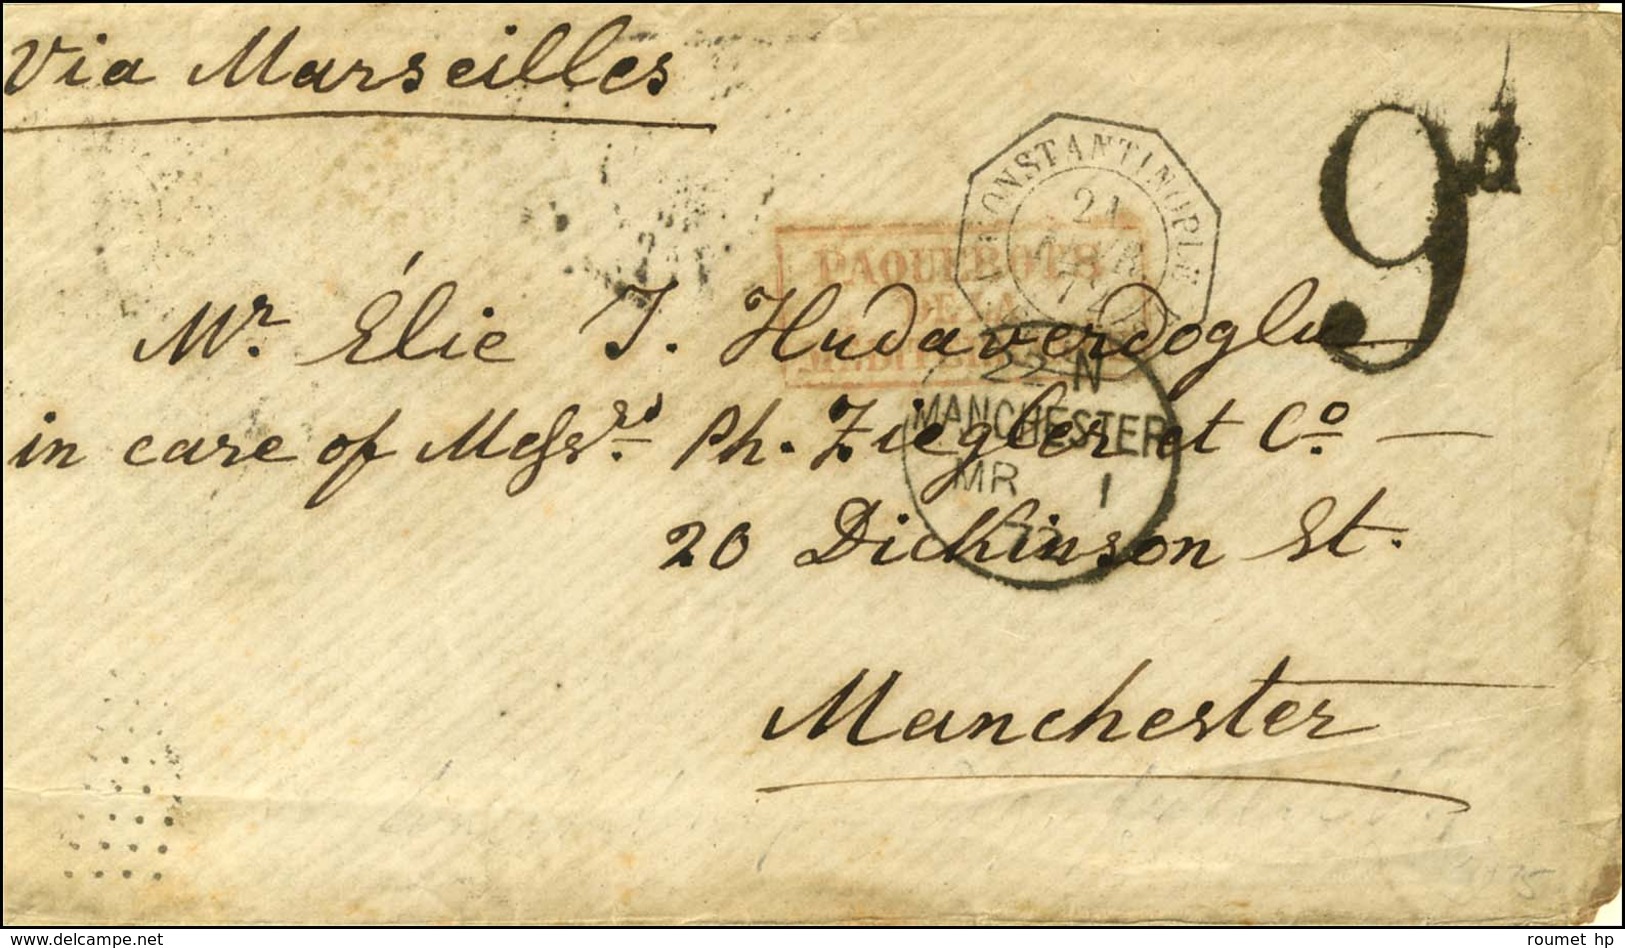 Via Marseilles
CONSTANTINOPLE
21
9d
PAQUEBOTS
DE LA
Mr. Élie J. Hudaverdoglu
22 N
MANCHESTER
MR 1
in care of Messrs. Ph. Ziegler et Co.
20 Dickinson St.
Manchester
roumet hp